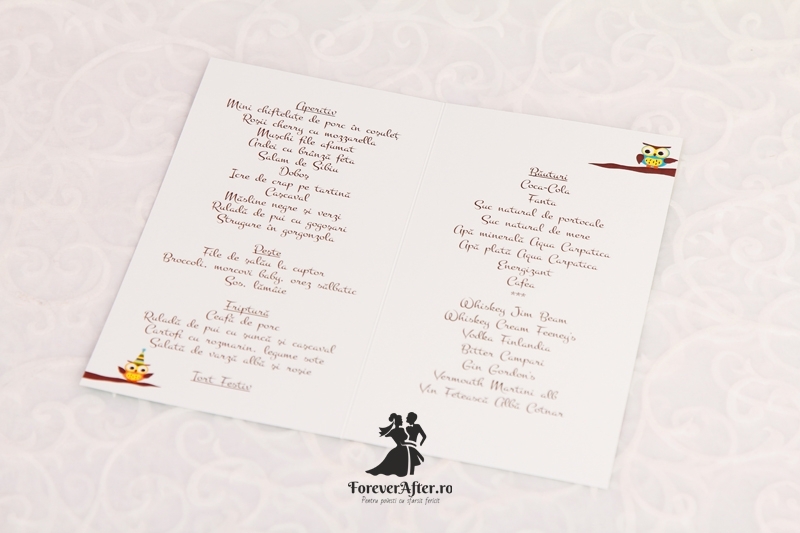 Aperitiv
Mini chifteluțe de porc în coșuleț
Roșii cherry cu mozzarella
Mușchi file afumat
Ardei cu brânză feta
Salam de Sibiu
Doboș
Icre de crap pe tartină
Cașcaval
Măsline negre și verzi
Ruladă de pui cu gogoșari
Strugure în gorgonzola
Pește
File de șalău la cuptor
Broccoli, morcovi baby, orez sălbatic
Sos, lămâie
Friptură
Ceafă de porc
Ruladă de pui cu șuncă și cașcaval
Cartofi cu rozmarin, legume sote
Salată de varză albă și roșie
Tort Festiv
Băuturi
Coca-Cola
Fanta
Suc natural de portocale
Suc natural de mere
Apă minerală Aqua Carpatica
Apă plată Aqua Carpatica
Energizant
Cafea
***
Whiskey Jim Beam
Whiskey Cream Feeney's
Vodka Finlandia
Bitter Campari
Gin Gordon's
Vermouth Martini alb
Vin Fetească Albă Cotnar
ForeverAfter.ro
Pentru povesti cu sfarsit fericit